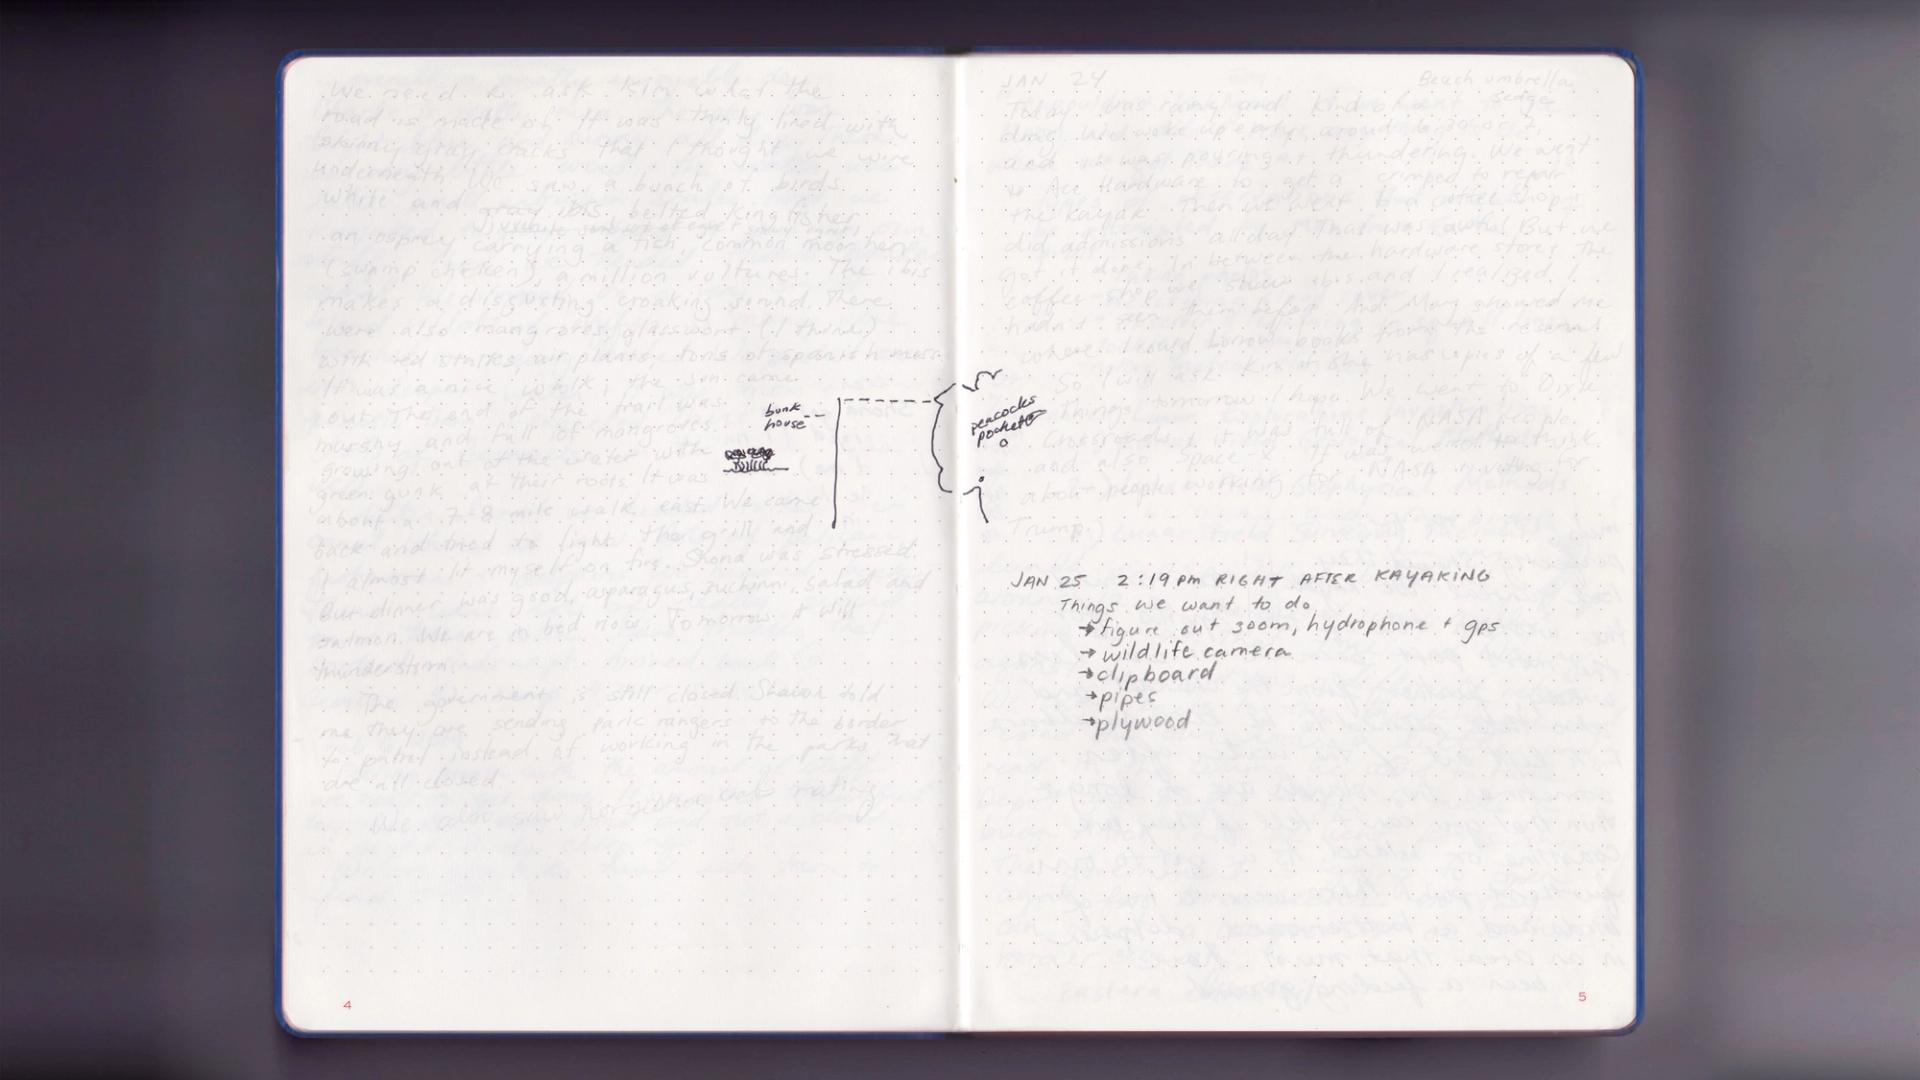 We need to ask Kim what the
road is made of. It was thinly lined with
skinny gray cracks that I thought we were
underneath. We saw a bunch of birds.
white and gray ibis, belted kingfisher
an osprey carrying a fish, common moorhen
(swamp chicken), a million vultures. The ibis
makes a disgusting croaking sound. There
were also mangroves, glasswort (I think)
with red stalks, air plants. tons of spanish moss.
It was a nice walk, the sun came
out. The end of the trail was
marshy and full of mangroves
growing out of the water with
green gunk at their roots. It was
about a 7-8 mile walk east. We came
back and tried to light the grill and
I almost lit myself on fire. Shona was stressed.
Our dinner was good, asparagus, zuchinni, salad and
salmon. We are in bed now. Tomorrow it will
thunderstorm.
The government is still closed. Shaiah told
me they are sending park rangers to the border
to patrol instead of working in the parks that
are all closed.
We also saw horseshoe crab mating
4
bunk
house
peacocks
pocket
JAN 24
Beach umbrella
sedge
Today was rainy and kind of
drag. We woke up early, around 6:30 or 7,
and it was pouring + thundering. We went
to Ace Hardware to get a crimped to repair
the kayak. Then we went to a coffee shop +
did admissions all day. That was awful. But we
got it done. In between the hardware store + the
coffee shop we saw ibis and I realized I
hadn't seen them before. And Mary showed me
where I could borrow books from the
So I will ask Kim if she has copies of a few
Things tomorrow I hope. We went to Dixie
Crossroads + it was full of NASA people
and also Space-X. It was
about people working for NASA + voting for
Trump.)
JAN 25 2:19 pm RIGHT AFTER KAYAKING
Things we want to do
→ figure out zoom, hydrophone + gps
→ wildlife camera
→ clipboard
→ pipes
→ plywood
5